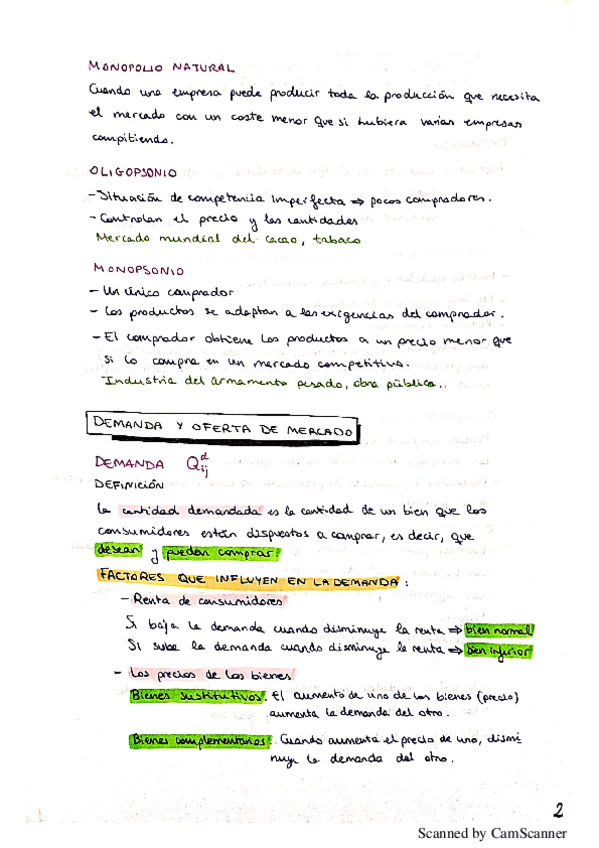 MONOPOLIO NATURAL
Cuando una empresa puede producir toda la producción que necesita
el mercado con un coste menor que si hubiera varias empresas
compitiendo.
OLIGOPSONIO
- Situación de competencia imperfecta ⇒ pocos compradores.
- Controlan el precio y las cantidades
Mercado mundial del cacao, tabaco
MONOPSONIO
- Un único comprador
- Los productos se adaptan a las exigencias del comprador.
- El comprador obtiene los productos a un precio menor que
si lo compra en un mercado competitivo.
Industria del armamento pesado, obra pública..
DEMANDA Y OFERTA DE MERCADO
DEMANDA Q^d_ij
DEFINICIÓN
La cantidad demandada es la cantidad de un bien que los
consumidores están dispuestos a comprar, es decir, que
desean y pueden comprar.
FACTORES QUE INFLUYEN EN LA DEMANDA:
- Renta de consumidores
Si baja la demanda cuando disminuye la renta ⇒ bien normal
Si sube la demanda cuando disminuye la renta ⇒ bien inferior
- Los precios de los bienes
Bienes sustitutivos. El aumento de uno de los bienes (precio)
aumenta la demanda del otro.
Bienes complementarios. Cuando aumenta el precio de uno, dismi
nuye la demanda del otro.
2
Scanned by CamScanner